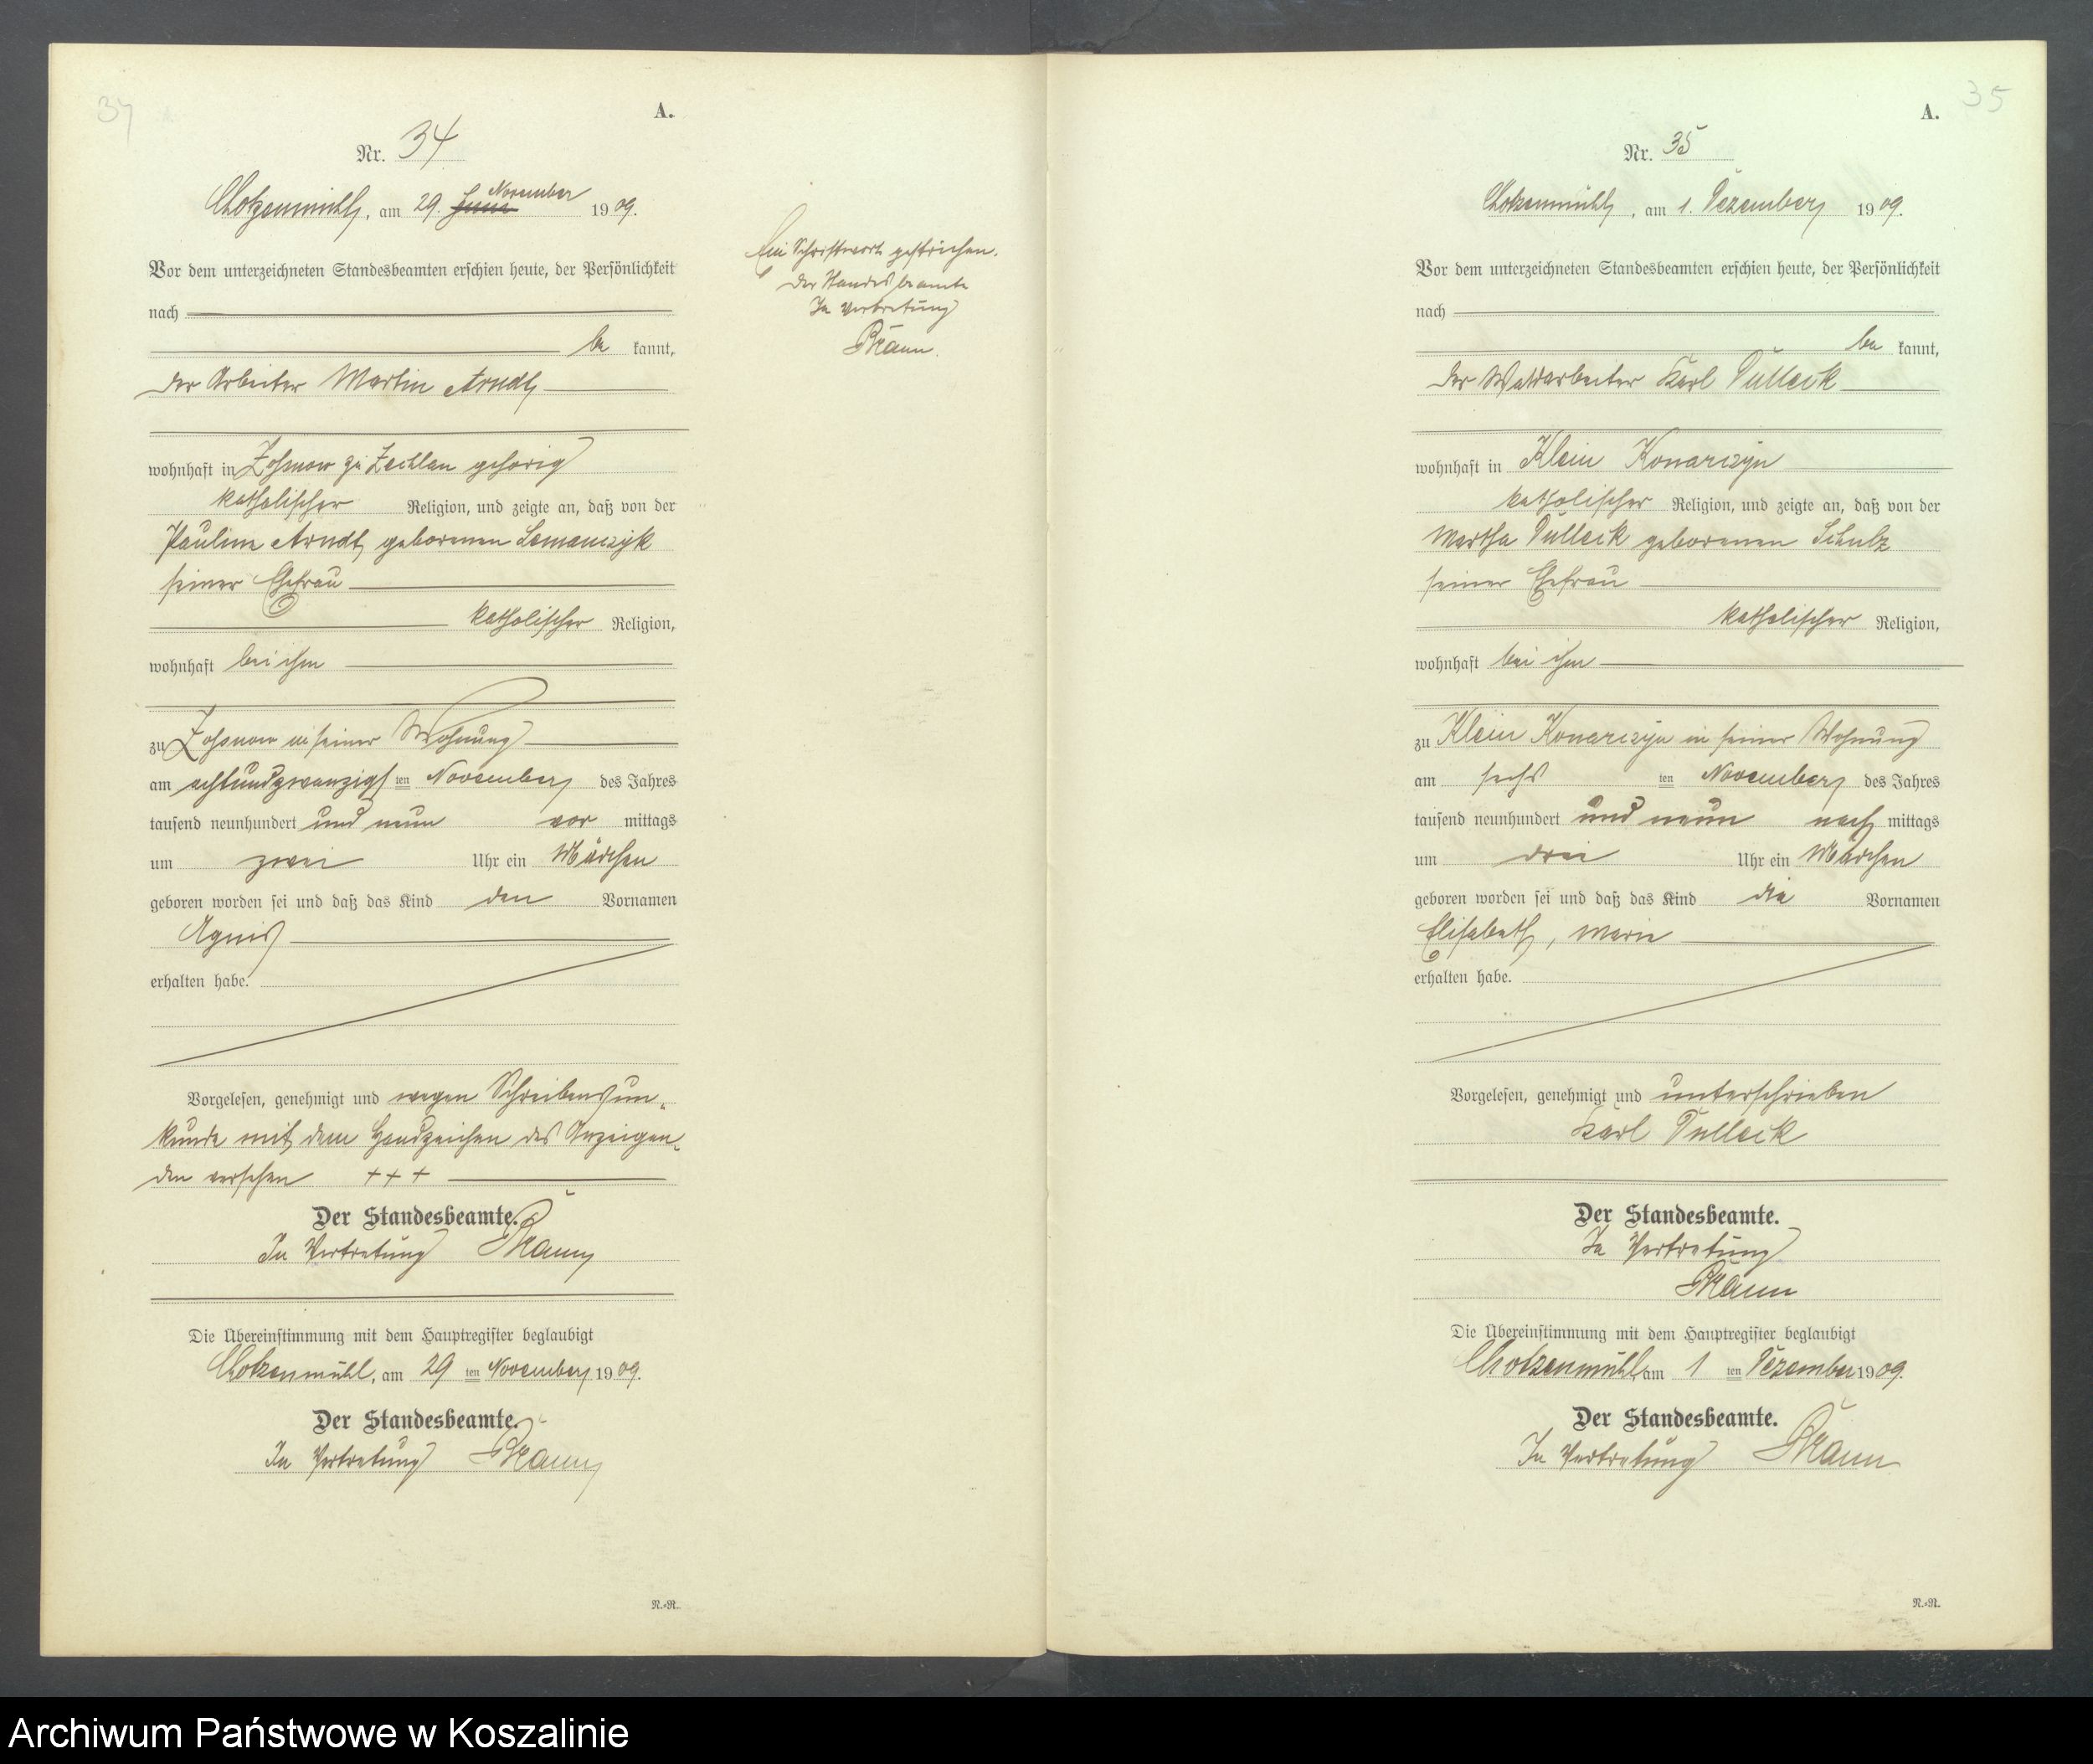 34
A.
Nr. 34
Chotzenmühl, am 29. Juni November 1909.
Vor dem unterzeichneten Standesbeamten erschien heute, der Persönlichkeit
nach
be kannt,
der Arbeiter Martin Arndt
wohnhaft in Zosnow zu Zechlau gehörig
katholischer Religion, und zeigte an, daß von der
Pauline Arndt, geborenen Lemanczyk
seiner Ehefrau
katholischer Religion,
wohnhaft bei ihm
zu Zosnow in seiner Wohnung
am achtundzwanzigsten November des Jahres
tausend neunhundert und neun vor mittags
um zwei Uhr ein Mädchen
geboren worden sei und daß das Kind den Vornamen
Agnes
erhalten habe.
Vorgelesen, genehmigt und wegen Schreibensun-
kunde mit dem Handzeichen des Anzeigen-
den versehen +++
Der Standesbeamte.
In Vertretung
Die Übereinstimmung mit dem Hauptregister beglaubigt
Chotzenmühl, am 29 ten November 1909.
Der Standesbeamte.
In Vertretung
R.-R.
Ein Schriftwort gestrichen.
Der Standesbeamte
In Vertretung
35
A.
Nr. 35
Chotzenmühl, am 1. Dezember 1909.
Vor dem unterzeichneten Standesbeamten erschien heute, der Persönlichkeit
nach
be kannt,
der Waldarbeiter Karl Dulleck
wohnhaft in Klein Konarczyn
katholischer Religion, und zeigte an, daß von der
Martha Dulleck geborenen Schulz
seiner Ehefrau
katholischer Religion,
wohnhaft bei ihm
zu Klein Konarczyn in seiner Wohnung
am sechs ten November des Jahres
tausend neunhundert und neun nach mittags
um drei Uhr ein Mädchen
geboren worden sei und daß das Kind die Vornamen
Elisabeth, Marie
erhalten habe.
Vorgelesen, genehmigt und unterschrieben
Karl Dulleck
Der Standesbeamte.
In Vertretung
Die Übereinstimmung mit dem Hauptregister beglaubigt
Chotzenmühl, am 1 ten Dezember 1909.
Der Standesbeamte.
In Vertretung
R.-R.
Archiwum Państwowe w Koszalinie